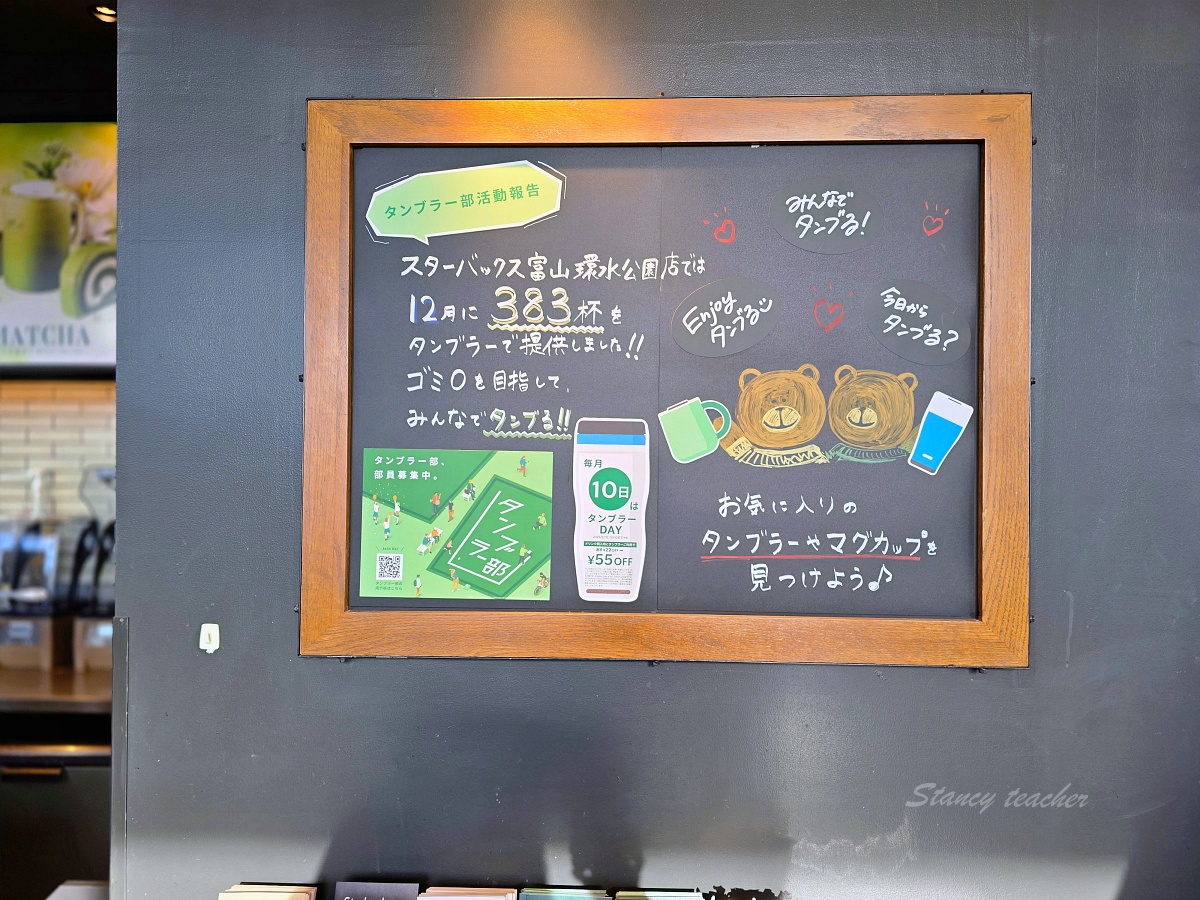 タンブラー部活動報告
スターバックス富山環水公園店では
12月に 383杯を
タンブラーで提供しました!!
ゴミ0を目指して、
みんなでタンブる!!
タンブラー部、
部員募集中。
タンブ
ラー部
毎月
10日は
タンブラー
DAY
¥55OFF
みんなで
タンブる!
Enjoy
タンブる
今日から
タンブる?
お気に入りの
タンブラーやマグカップを
見つけよう♪
MATCHA
Stancy teacher